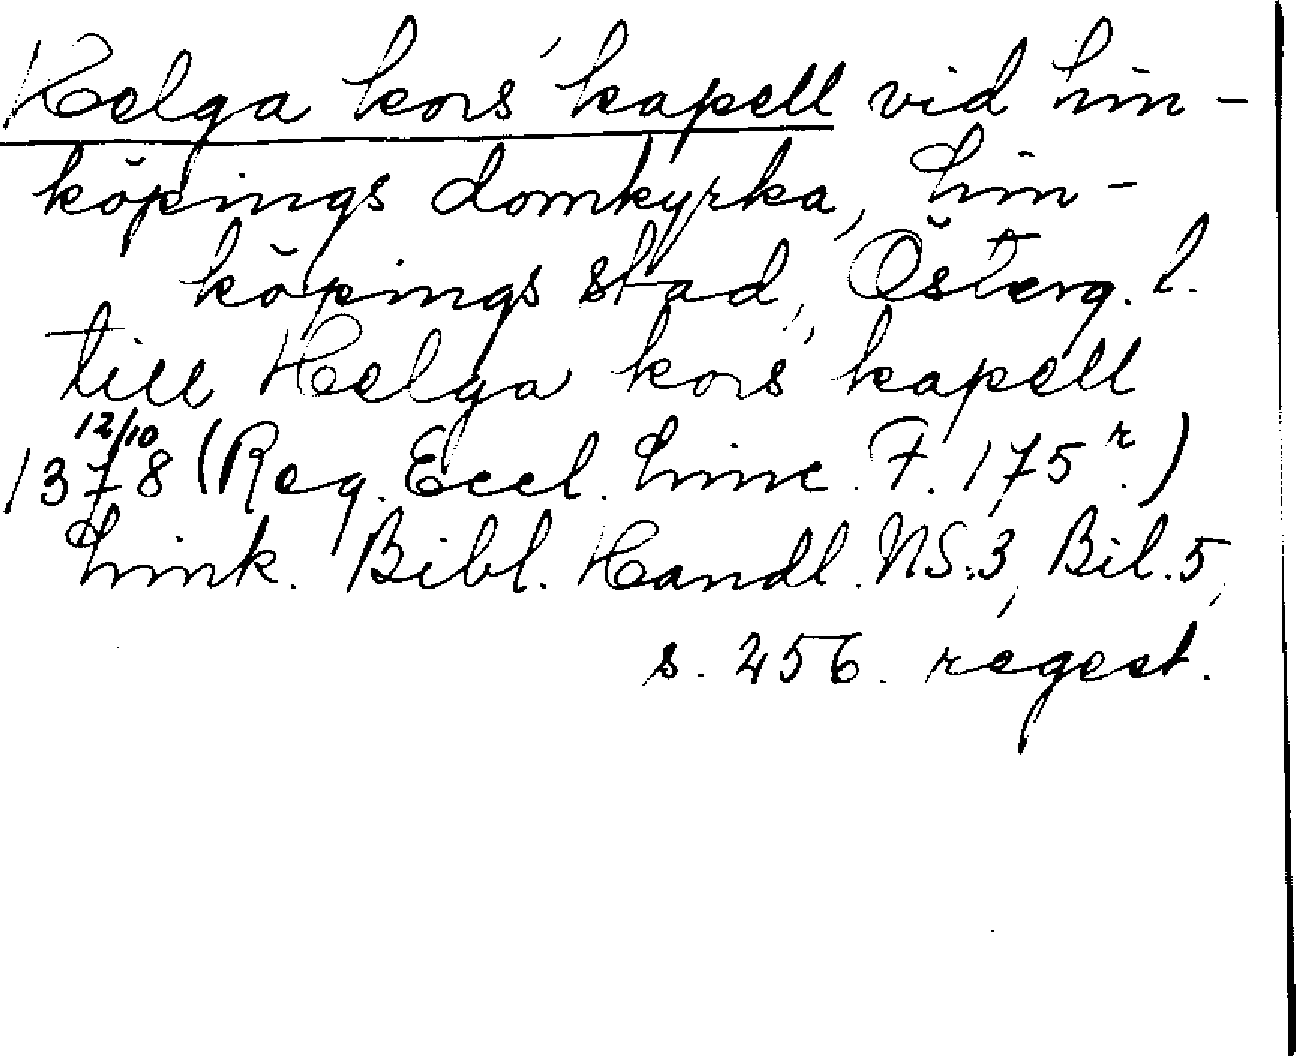 Helga kors' kapell vid Lin-
köpings domkyrka, Lin-
köpings stad, Österg. l.
till Helga kors' kapell
12/10
1378 (Reg. Eccl. Linc. F. 175 r.)
Link. Bibl. Handl. NS.3, Bil.5,
s. 256. regest.